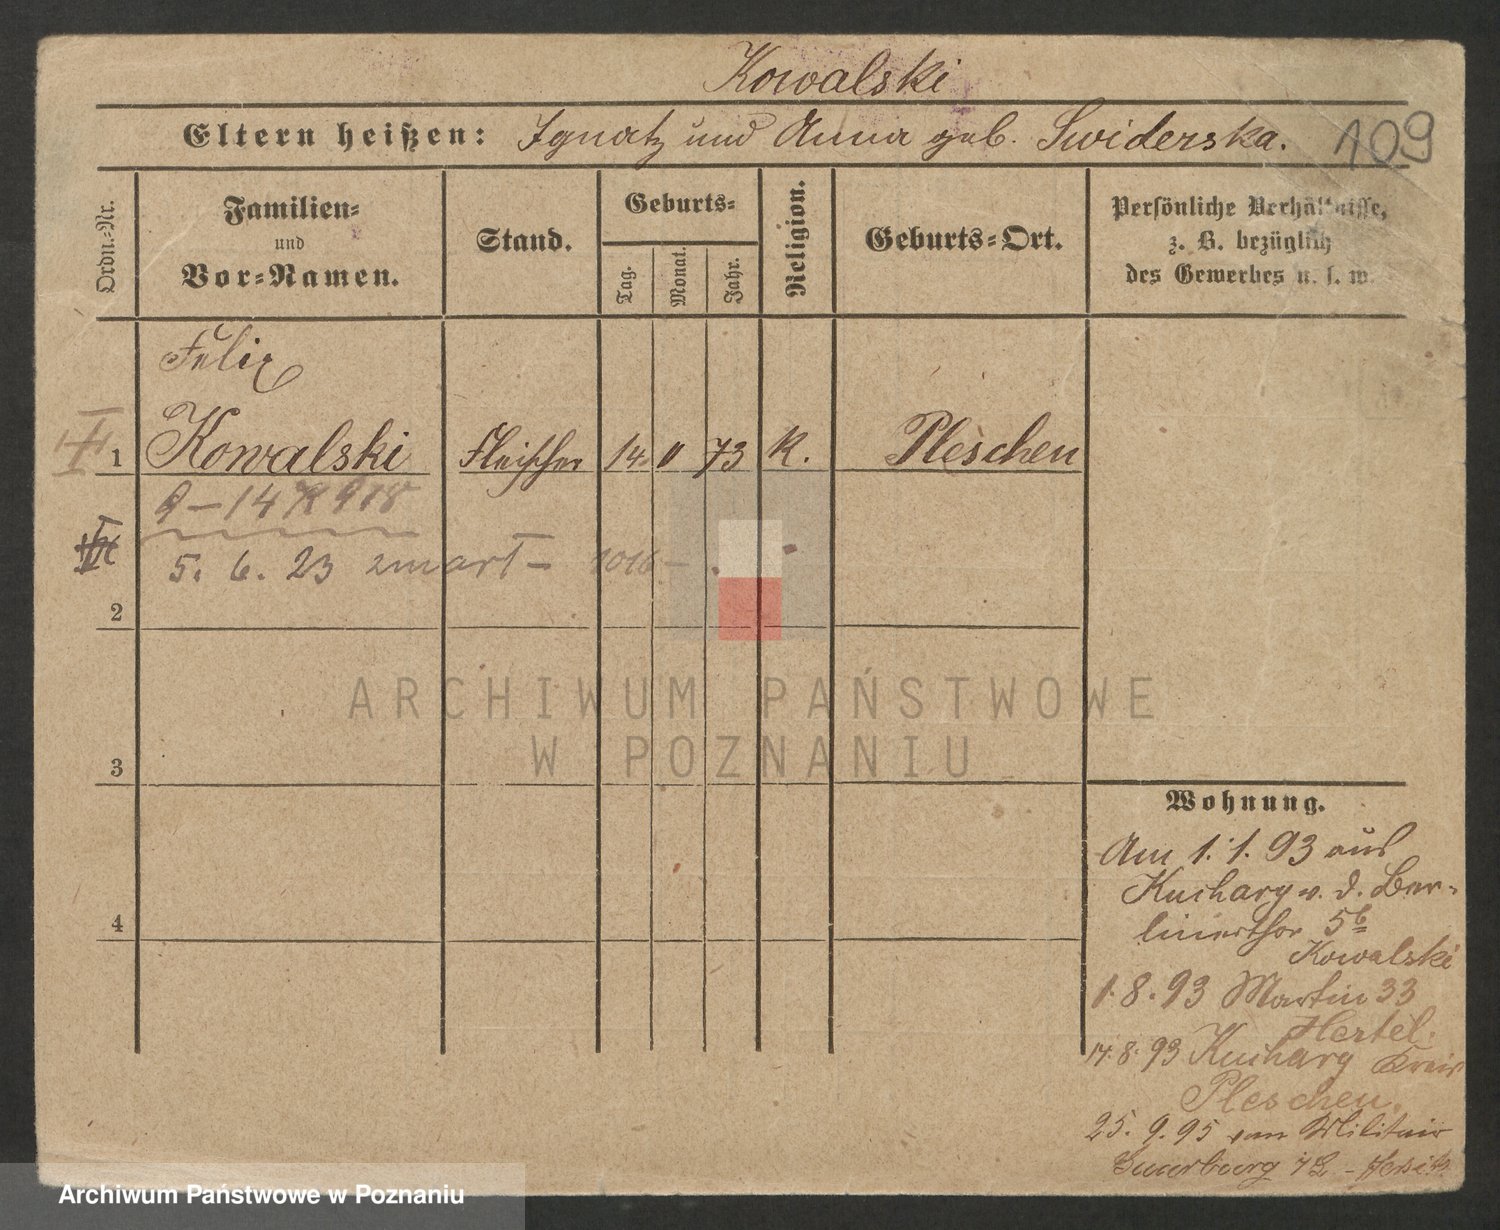 Kowalski
Eltern heißen: Ignatz und Anna geb. Swiderska.
109
Ordn.-Nr.
Familien-
und
Vor-Namen.
Stand.
Geburts-
Tag.
Monat.
Jahr.
Religion.
Geburts-Ort.
Persönliche Verhältnisse,
z. B. bezüglich
des Gewerbes u. s. w.
Felix
1 Kowalski Fleischer 14. 11 73 K. Pleschen
9-14 918
5. 6. 23 zmarł - 1016 -
2
3
4
ARCHIWUM PAŃSTWOWE
W POZNANIU
Wohnung.
Am 1. 1. 93 aus
Kuchary v. d. Ber-
linerthor 5b
Kowalski
1. 8. 93 Martin 33
Hertel.
14. 8. 93 Kuchary Kreis
Pleschen.
25. 9. 95 vom Militair
Archiwum Państwowe w Poznaniu